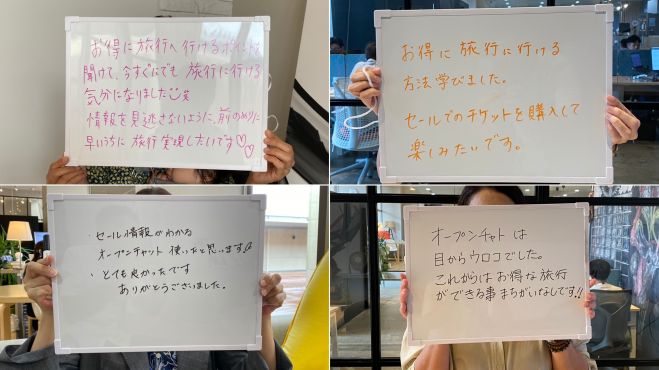 お得に旅行へ行けるポイントが
聞けて、今すぐにでも旅行に行ける
気分になりました
情報を見逃さないように、前のめりに
早いうちに旅行実現したいです♡♡
お得に旅行に行ける
方法学びました。
セールでのチケットを購入して
楽しみたいです。
・セール情報がわかる
オープンチャット使いたと思います!
・とても良かったです
ありがとうございました。
オープンチャットは
目からウロコでした。
これからはお得な旅行
ができる事まちがいなしです!!